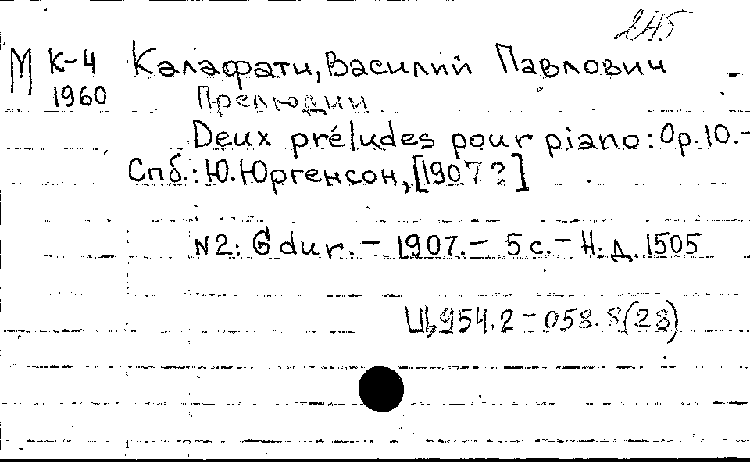 М К-4 Калафати, Василий Павлович
1960 Прелюдии
Deux préludes pour piano: Op.10.-
Спб.: Ю. Юргенсон, [1907?]
N2: G dur. - 1907. - 5 с. - Н. д. 1505
Ць954.2-058.8(23)